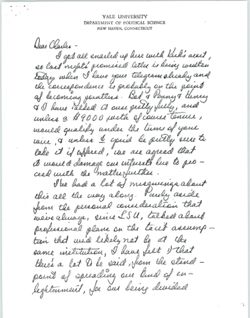 YALE UNIVERSITY
DEPARTMENT OF POLITICAL SCIENCE
NEW HAVEN, CONNECTICUT
Dear Charles -
I get all snarled up here with
so last night's promised letter is being written
today when I have your telegram already and
the correspondence is probably on the point
of becoming pointless. Bob & Penny & Ginny
& I have talked it over pretty fully, and
unless a $9000 with of course tenure,
would qualify under the terms of your
race, & unless I could be pretty sure to
take it if offered, we are agreed that
it would damage our interests too to pro-
ceed with the matter further.
I've had a lot of misgivings about
this all the way along. Purely aside
from the personal consideration that
we've always, since LSU, talked about
professional plans on the tacit assump-
tion that we'd likely not be at the
same institution, I have felt that
there's a lot to be said, from the stand-
point of spreading our kind of en-
lightenment, for our being divided